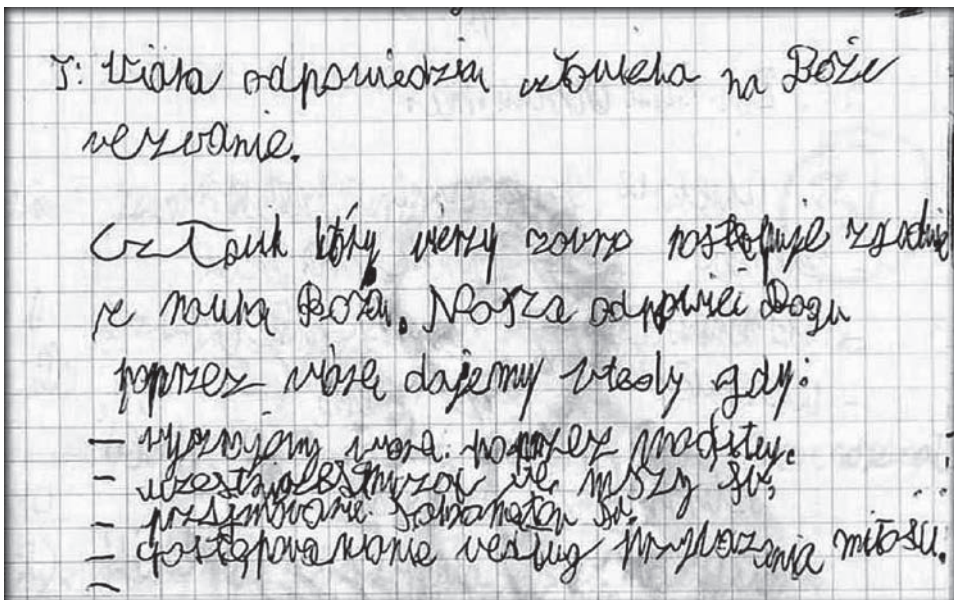 T: Wiara odpowiedzią człowieka na Boże
wezwanie.
Człowik który wierzy zawrze postępuje zgodnie
z nauką Bożą. Nasza odpowiei Bogu
poprzez wiarę dajemy wtedy gdy:
- wyznajemy wiarę poprzez modlitwy.
- we mszy św,
- przyjmowanie św.
- postępowawanie według przykazania miłosu.
-